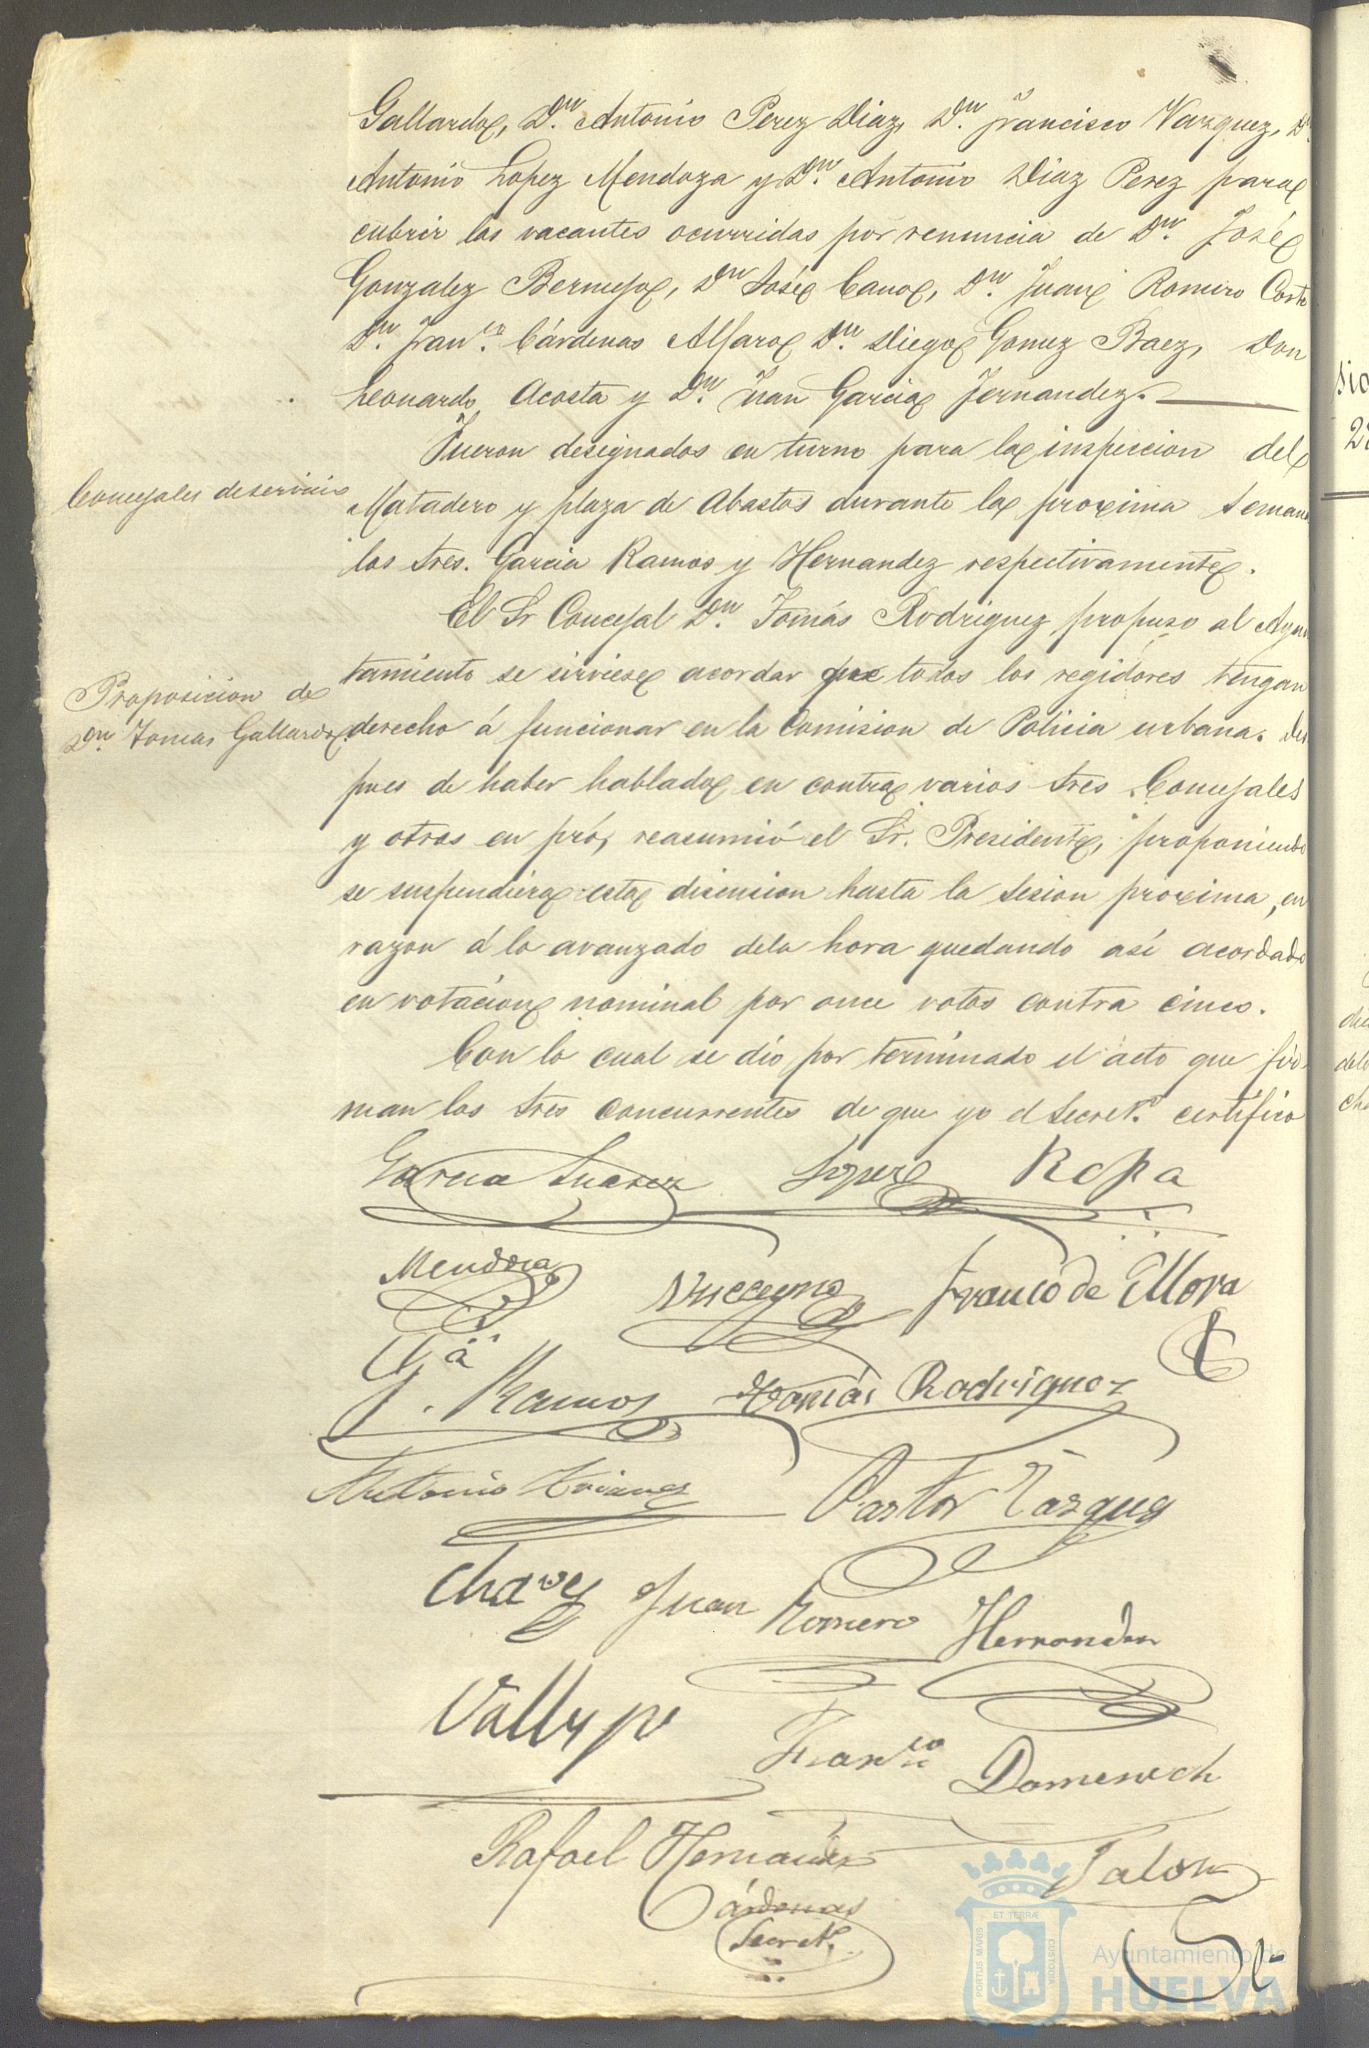 Gallardo, Dn. Antonio Perez Diaz, Dn. Francisco Vazquez, Dn.
Antonio Lopez Mendoza y Dn. Antonio Diaz Perez para
cubrir las vacantes ocurridas por renuncia de Dn. José
Gonzalez Bermejo, Dn José Cano, Dn. Juan Romero Corte
Dn. Franco. Cárdenas Alfaro Dn. Diego Gomez Baez, Don
Leonardo Acosta y Dn. Juan Garcia Fernandez.
Fueron designados en turno para la inspeccion del
Concejales de servicio
Matadero y plaza de Abastos durante la proxima semana
los Sres. Garcia Ramos y Hernandez respectivamente.
El Sr Concejal Dn. Tomás Rodriguez propuso al Ayun
tamiento se sirviese acordar que todos los regidores tengan
Proposicion de
Dn. Tomas Gallardo
derecho á funcionar en la Comision de Policia urbana. Des
pues de haber hablado en contra varios Sres Concejales
y otros en pró, reasumió el Sr. Presidente, proponiendo
se suspendiera esta discusion hasta la sesion proxima, en
razon á lo avanzado dela hora quedando asi acordado
en votacion nominal por once votos contra cinco.
Con lo cual se dio por terminado el acto que fir
man los Sres concurrentes de que yo el Secreto. certifico
Garcia Suarez Lopez Ropa
Mendoza Franco de P Mora
Ga
J. Ramos Tomás Rodriguez
Antonio Trianes Pastor Vazquez
Chavez Juan Romero Hernandez
Franco Domenech
Rafael Hernandez Talon
Cárdenas
Secreto.
PORTUS MARIS ET TERRÆ CUSTODIA
Ayuntamiento de
HUELVA